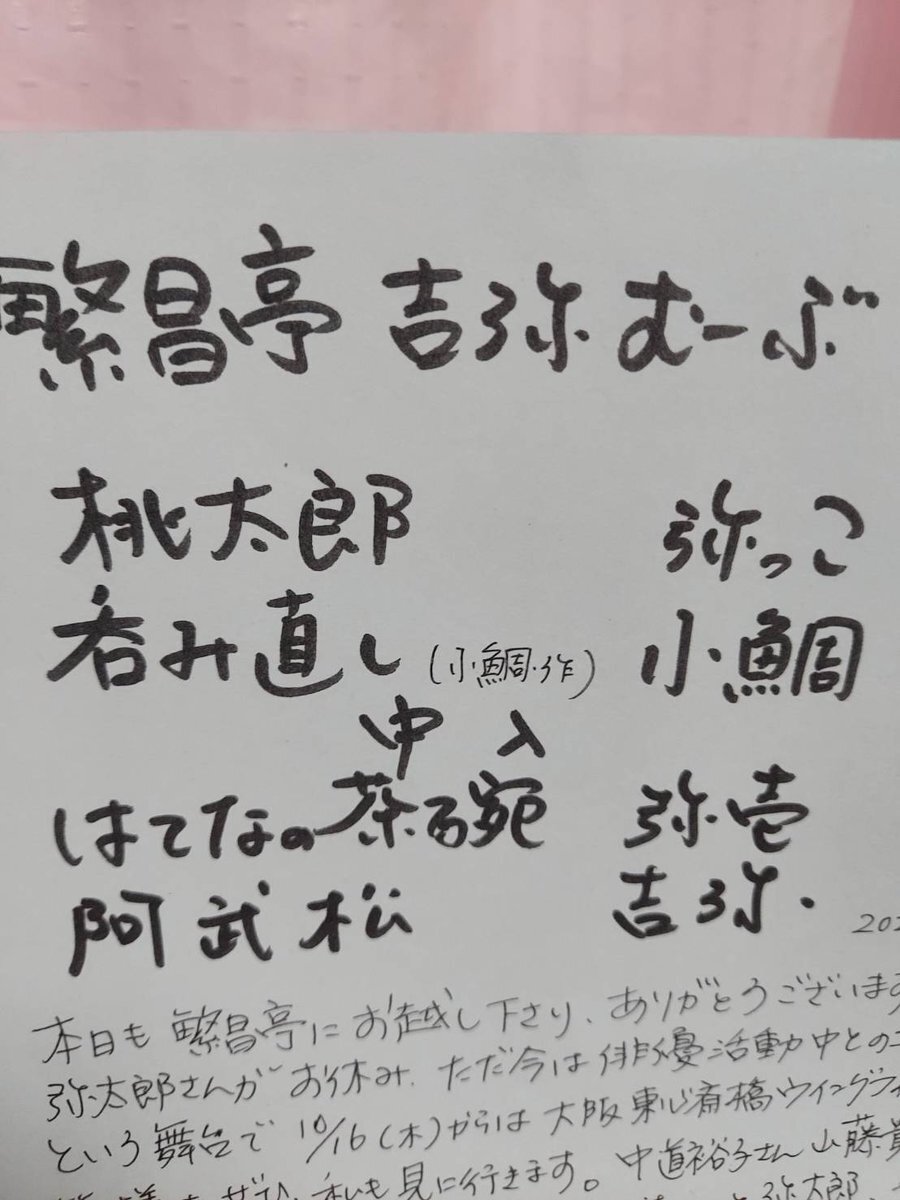 繁昌亭 吉弥むーぶ
桃太郎 弥っこ
呑み直し(小鯛作) 小鯛
中入
はてなの茶碗 弥壱
阿武松 吉弥.
202
本日も繁昌亭にお越し下さり、ありがとうございます
弥太郎さんがお休み、ただ今は俳優活動中とのこ
という舞台で 10/16(木)からは大阪東心斎橋ウイングフィ
ぜひ、私も見に行きます。中道裕子さん 山藤貴
弥太郎